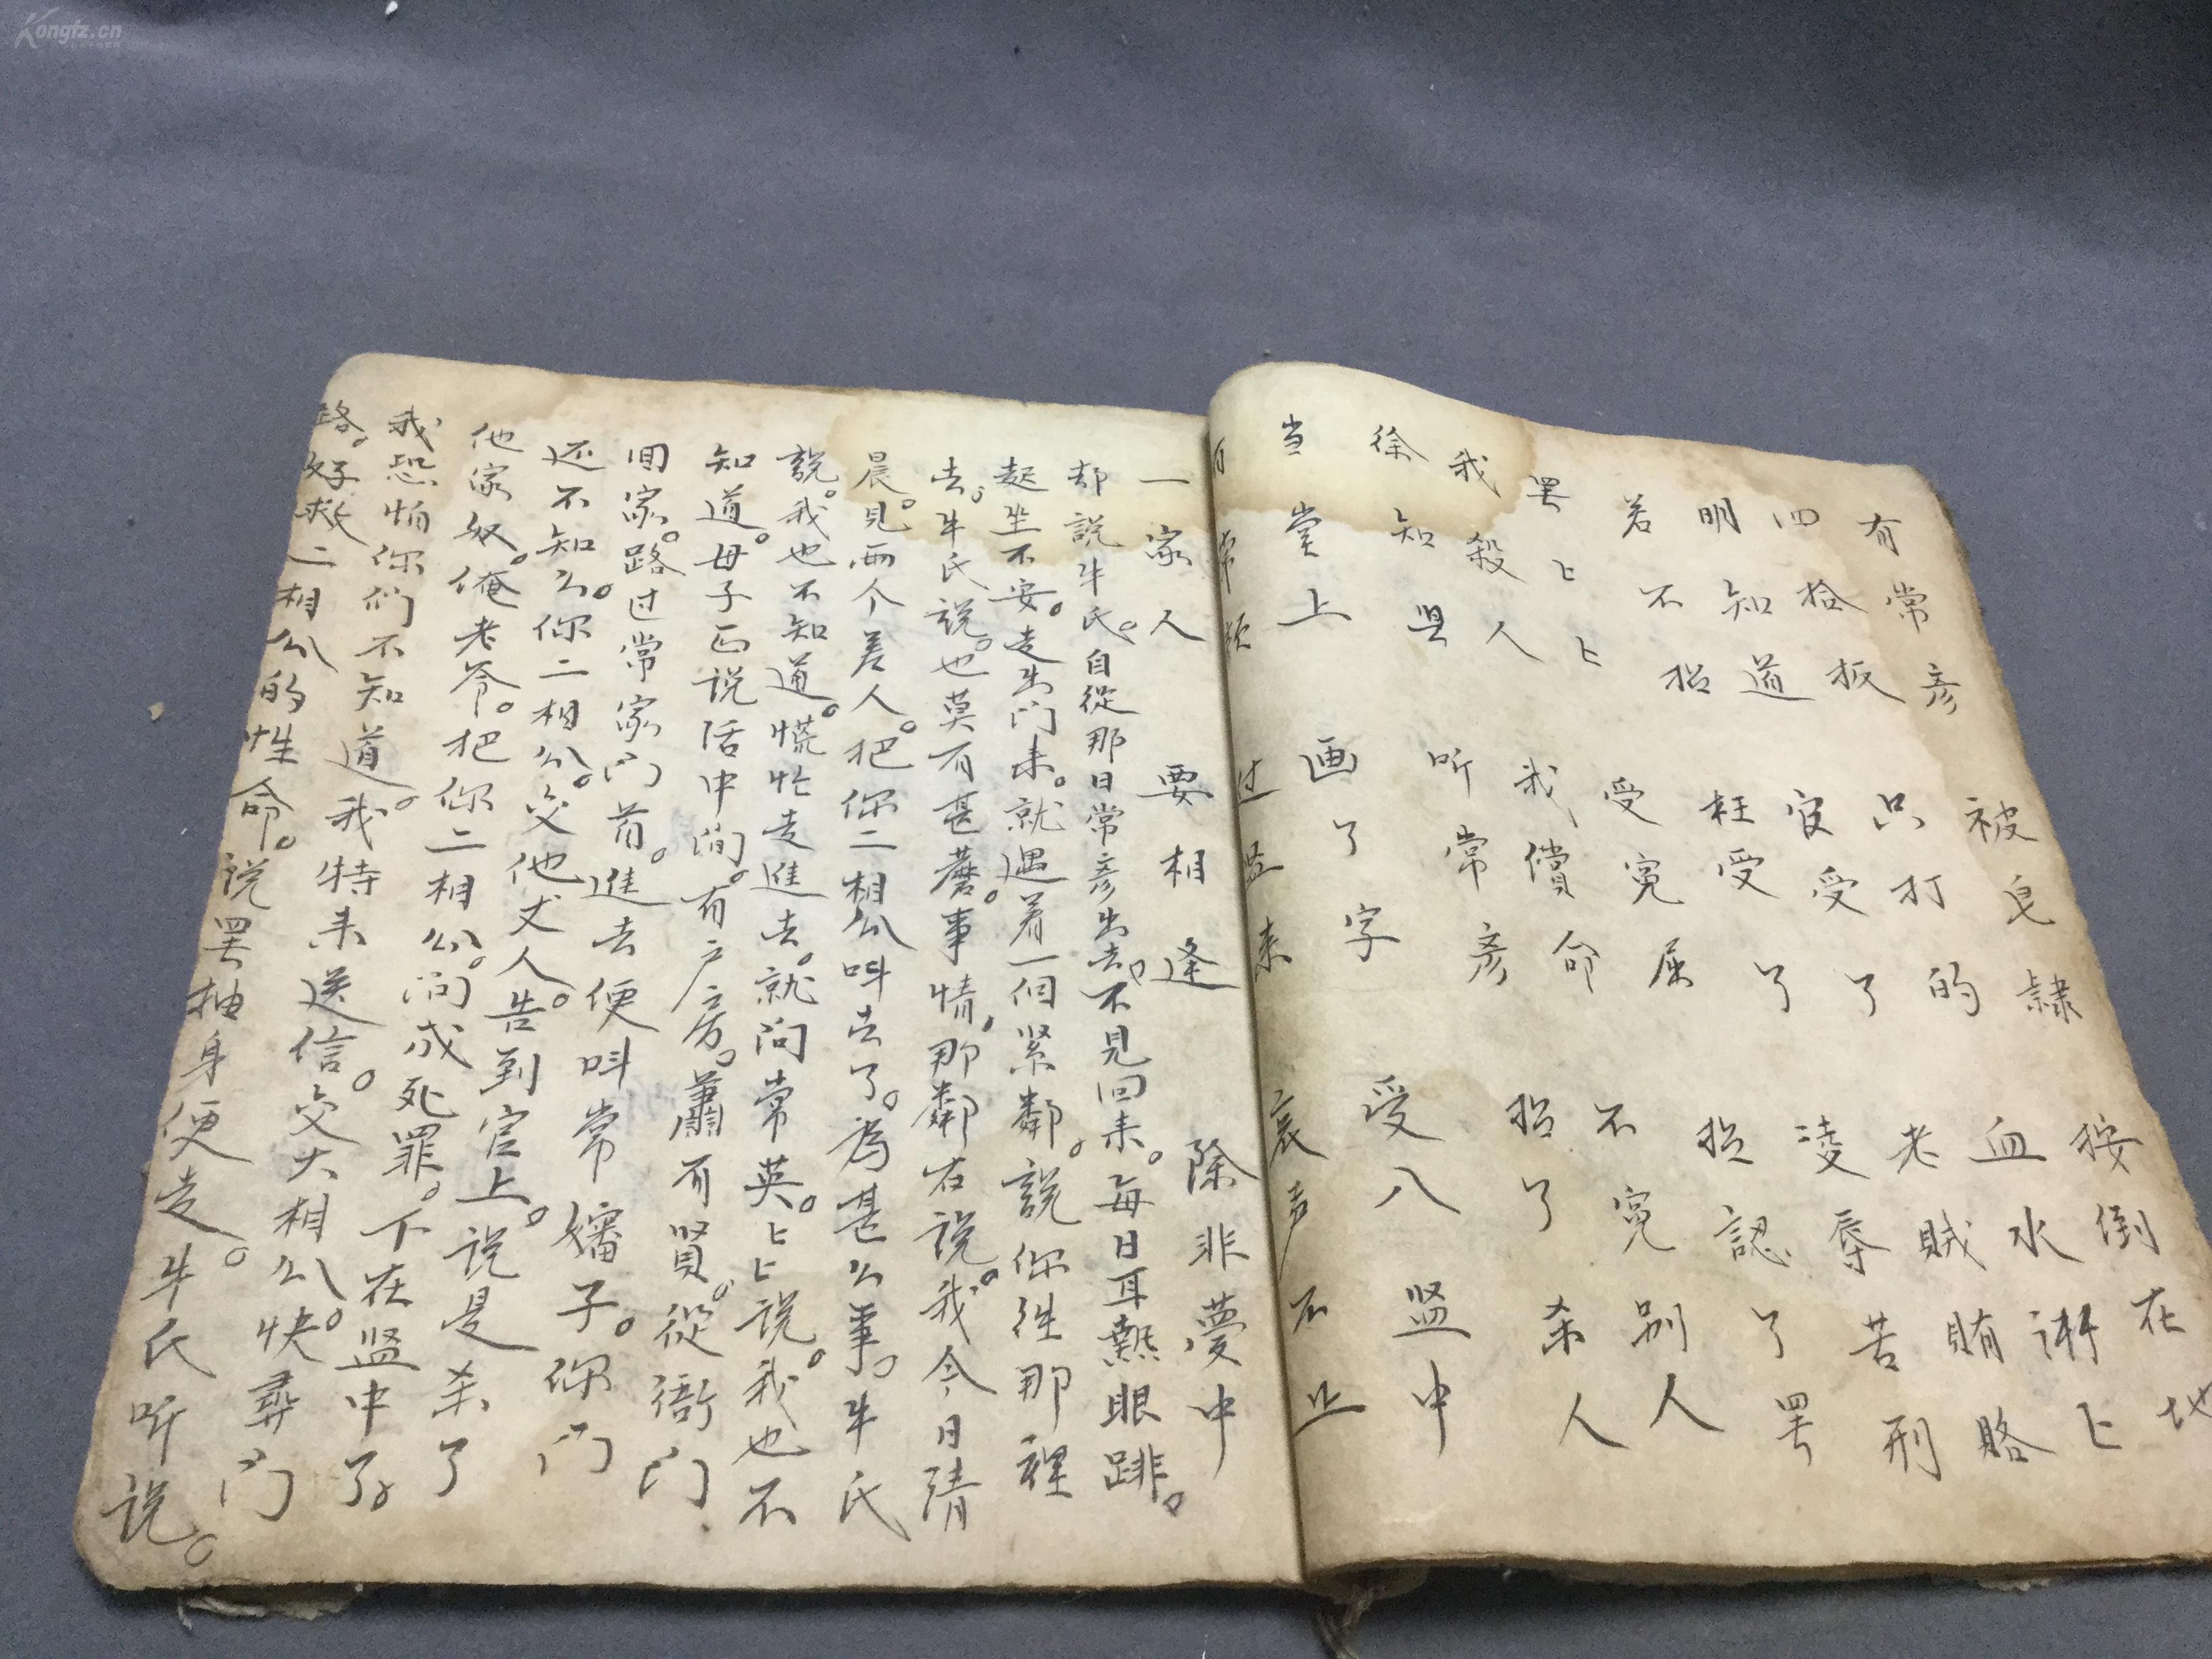 有常彦 被皂隸 按倒在地
四拾板 只打的 血水淋上
明知道 官受了 老賊賄賂
若不招 枉受了 凌辱苦刑
罢上上 受冤屈 招認了罢
我殺人 我償命 不冤别人
徐知县 听常彦 招了杀人
当堂上 画了字 受入监中
有常 过监来 哀声不止
一家人 要相逢 除非夢中
却說牛氏。自從那日常彦出去。不見回来。每日耳熱眼跳。
起坐不安。走出门来。就遇着一個紧鄰。說你往那裡
去。牛氏説。也莫有甚蘑事情。那鄰右説。我今日清
晨。見両个差人。把你二相公叫去了。為甚公事。牛氏
説。我也不知道。慌忙走進去。就问常英。上上説。我也不
知道。母子正説话中间。有户房。蕭有賢。從衙门
回家。路过常家门前。進去便叫常嬸子。你门
还不知公。你二相公。交他丈人。告到官上。说是杀了
他家奴。俺老爷。把你二相公。问成死罪。下在监中了。
我恐怕你们不知道。我特来送信。交大相公。快尋门
路。好救二相公的性命。说罢抽身便走。牛氏听说。
Kongfz.cn